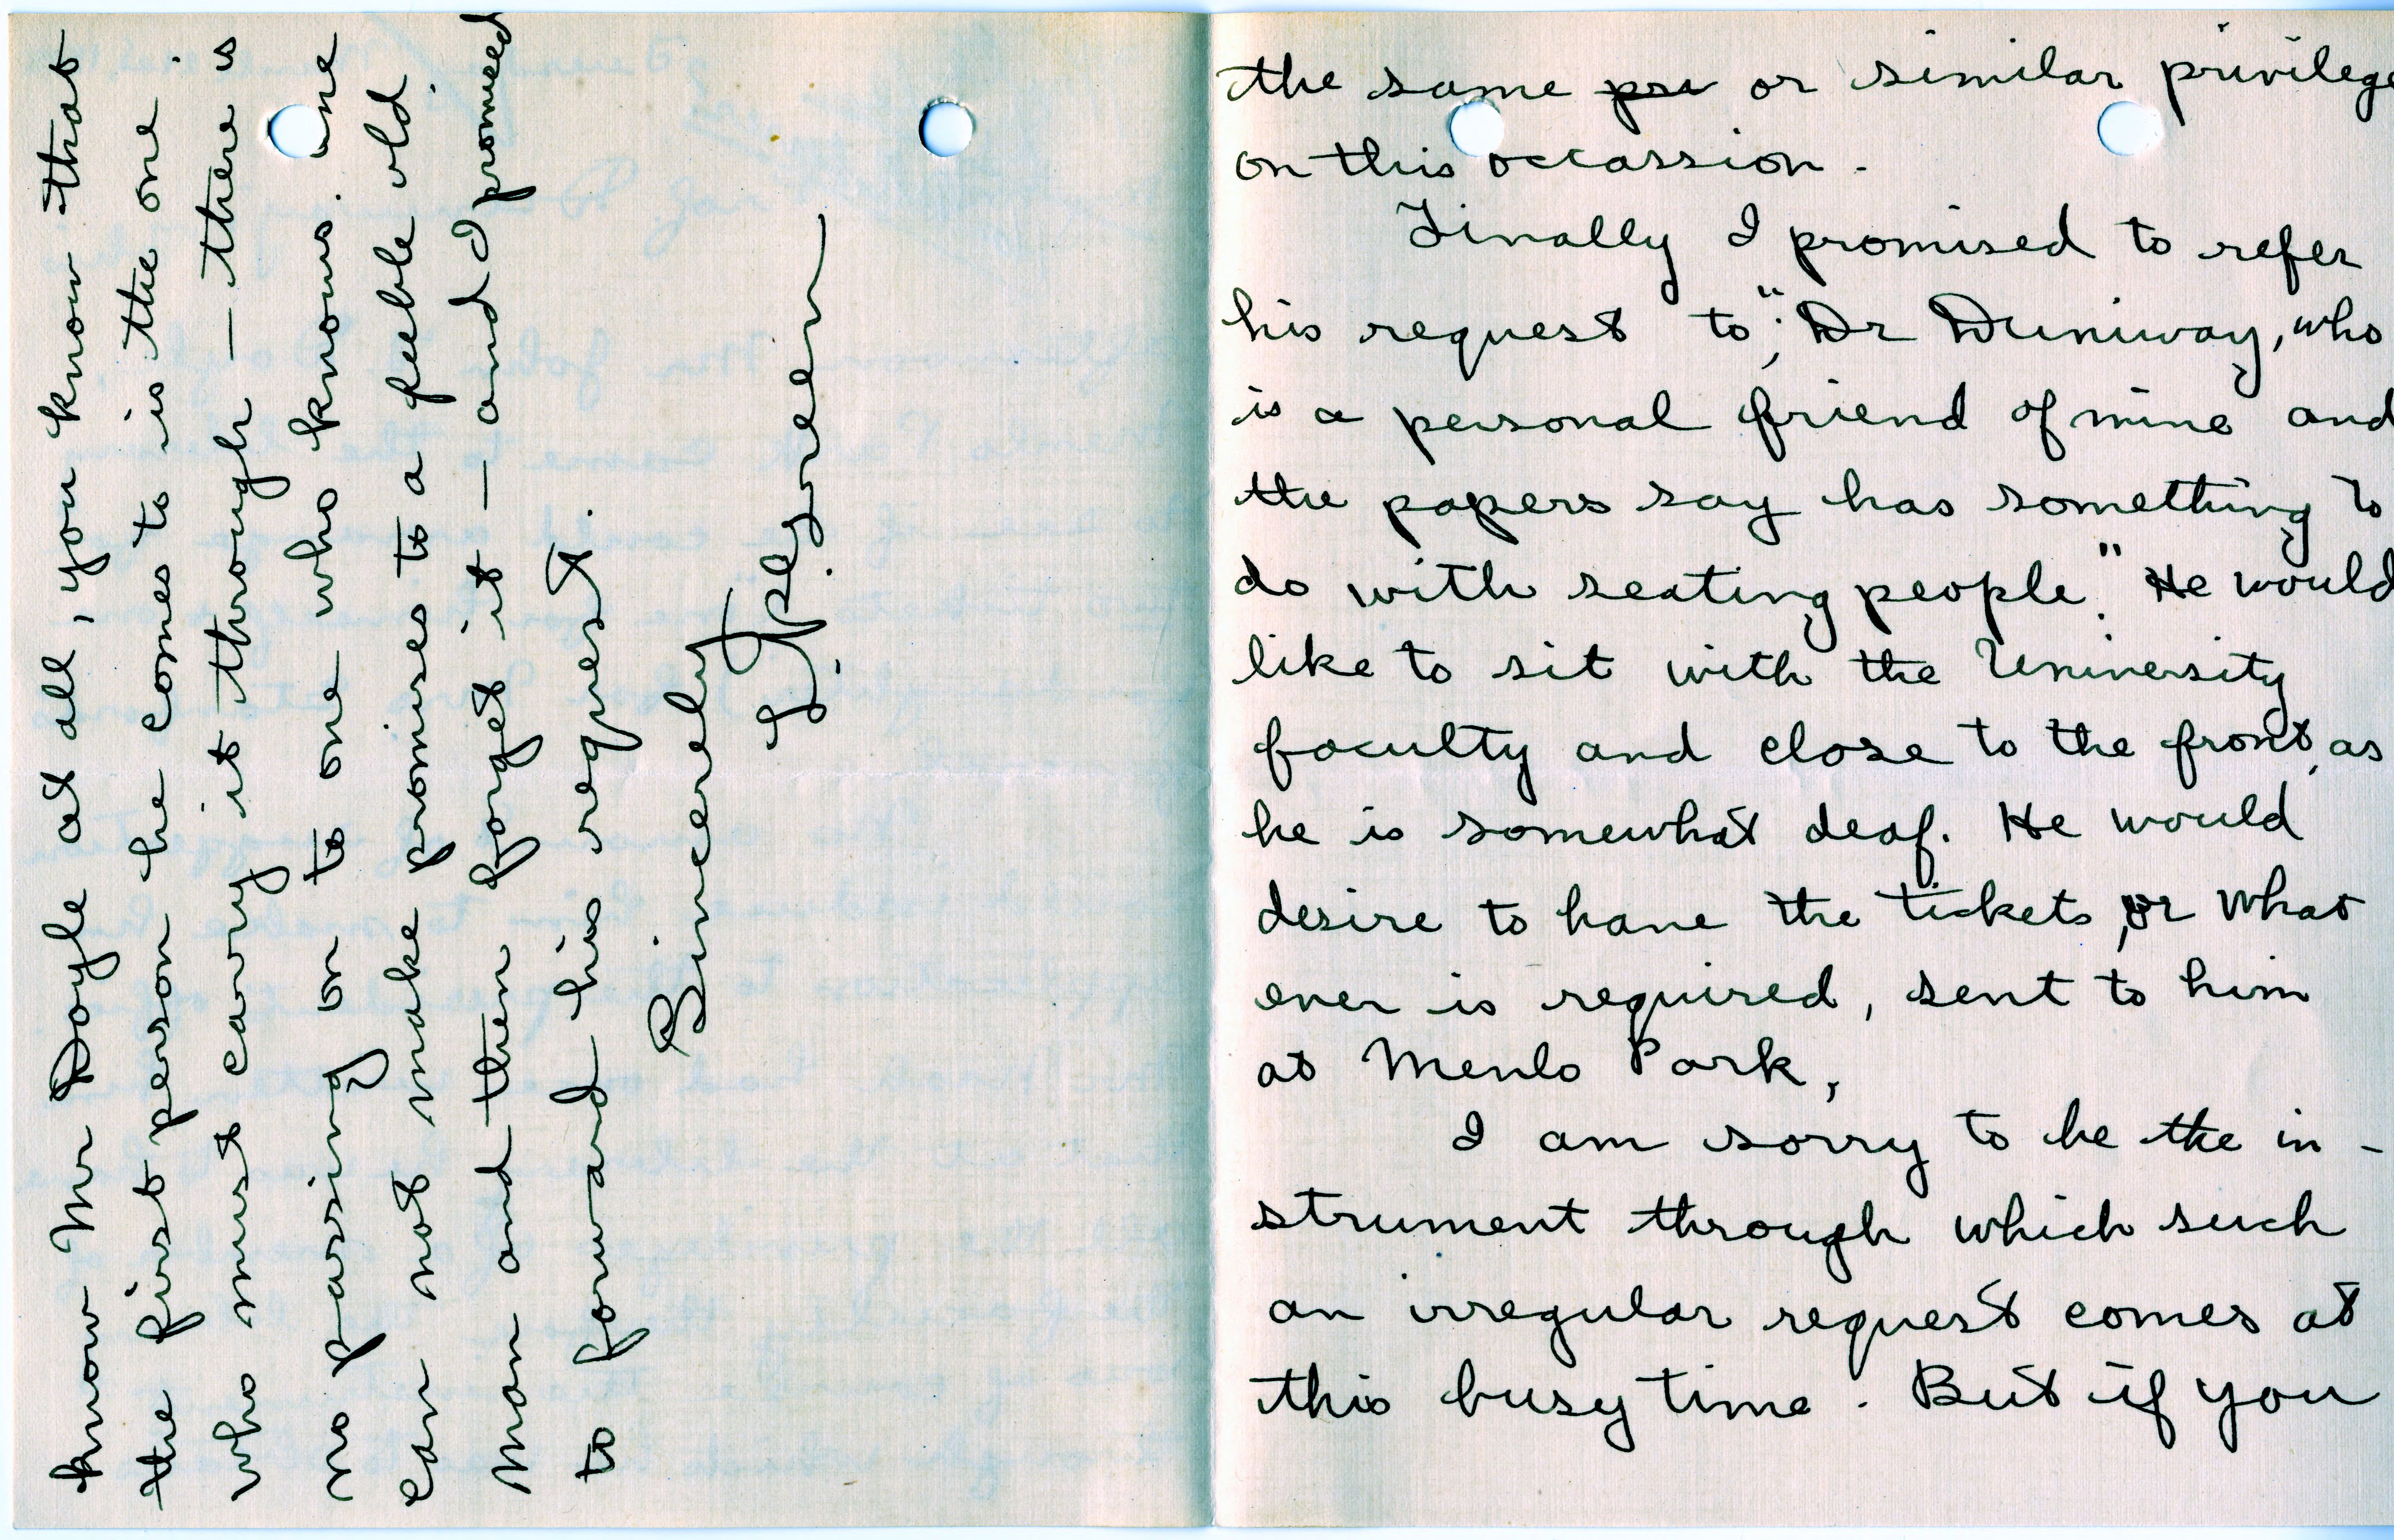 the same pri or similar privilege
on this occassion.
Finally I promised to refer
his request to; "Dr Duniway, who
is a personal friend of mine and
the papers say has something to
do with seating people." He would
like to sit with the University
faculty and close to the front, as
he is somewhat deaf. He would
desire to have the tickets, or what
ever is required, sent to him
at Menlo Park,
I am sorry to be the in-
strument through which such
an irregular request comes at
this busy time. But if you
know Mr Doyle at all, you know that
the first person he comes to is the one
who must carry it through — there is
no passing on to one who knows. One
can not make promises to a feeble old
man and then forget it — and I promised
to forward his request.
Sincerely